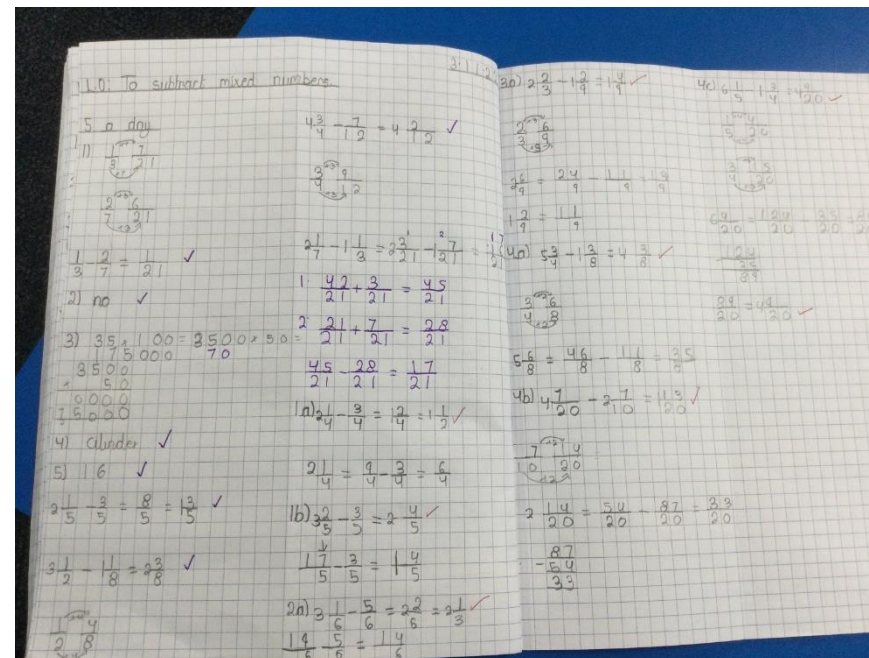 L.O: To subtract mixed numbers
5 a day
1) 1/3 7/21
2/7 6/21
1/3 - 2/7 = 1/21 ✓
2) no ✓
3) 35 x 100 = 3500 x 50 =
175000 70
3500
x 50
0000
75000
4) cilinder ✓
5) 16 ✓
2 1/5 - 3/5 = 8/5 = 1 3/5 ✓
3 1/2 - 1 1/8 = 2 3/8 ✓
1/2 4/8
4 3/4 - 7/12 = 4 2/12 ✓
3/4 9/12
2 1/7 - 1 1/3 = 2 3/21 - 1 7/21 =
1. 42/21 + 3/21 = 45/21
2 21/21 + 7/21 = 28/21
45/21 - 28/21 = 17/21
1a) 2 1/4 - 3/4 = 1 2/4 = 1 1/2 ✓
2 1/4 = 9/4 - 3/4 = 6/4
1b) 3 2/5 - 3/5 = 2 4/5 ✓
17/5 - 3/5 = 1 4/5
2a) 3 1/6 - 5/6 = 2 2/6 = 2 1/3 ✓
19/6 - 5/6 = 14/6
3a) 2 2/3 - 1 2/9 = 1 4/9 ✓
2/3 6/9
2 6/9 = 24/9 - 11/9 =
1 2/9 = 11/9
4a) 5 3/4 - 1 3/8 = 4 3/8 ✓
3/4 6/8
5 6/8 = 46/8 - 11/8 = 35/8
4b) 4 7/20 - 2 7/10 = 1 13/20 ✓
7/10 14/20
2 14/20 = 54/20 - 87/20 = 33/20
87
- 54
33
4c) 6 1/5 - 1 3/4 = 4 9/20 ✓
1/5 4/20
3/4 15/20
6 4/20 = 124/20 35/20
89/20 = 4 9/20 ✓